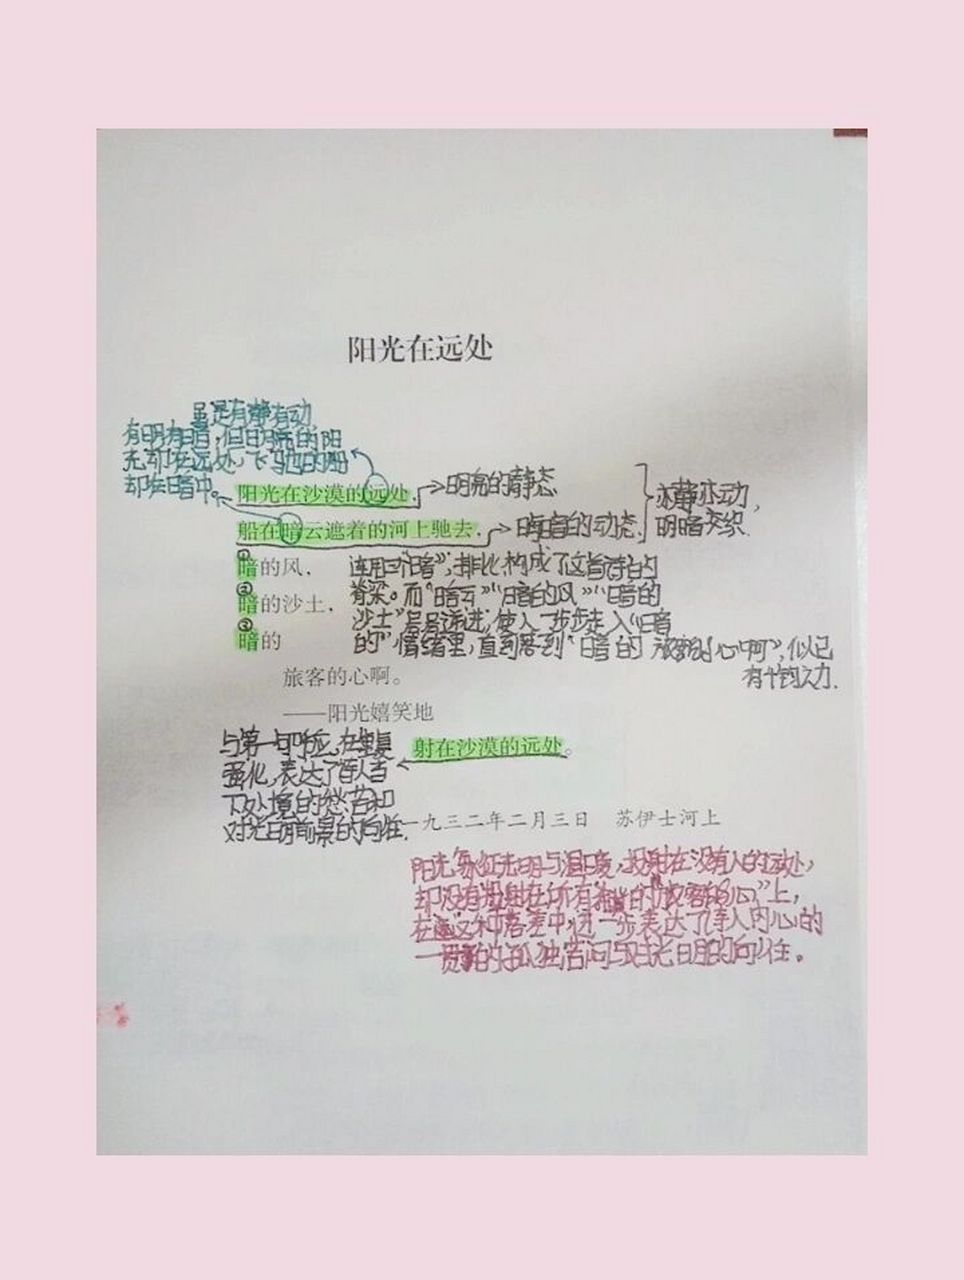 阳光在远处
虽是有静有动，
有明有暗，但明亮的阳
光却在远处，飞驰的船
却在暗中。
阳光在沙漠的远处，
→明亮的静态
亦静亦动，
明暗交织.
船在暗云遮着的河上驰去，
→暗的动态
①
暗的风，
②
暗的沙土，
③
暗的
连用三个"暗"，排比，构成了这首诗的
脊梁。而"暗云""暗的风""暗的
沙土"层层递进，使人一步步走入"暗
的"情绪里，直到落到"暗的旅客的心啊"，似已
有千钧之力.
旅客的心啊。
——阳光嬉笑地
射在沙漠的远处。
与第一句呼应，在重复
强化，表达了诗人当
下处境的愁苦和
对光明前景的向往.
一九三二年二月三日　苏伊士河上
阳光象征光明与温暖，投射在没有人的远处，
却没有投射在所有的"旅客的心"上，
在这种落差中，进一步表达了诗人内心的
一贯的孤独苦闷与对光明的向往。